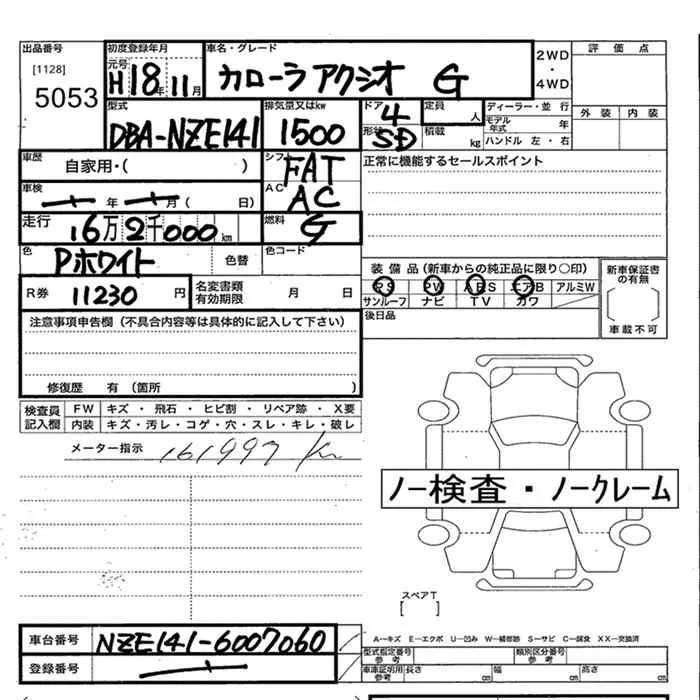 出品番号 初度登録年月 車名・グレード 評価点
[1128] 元号 2WD・4WD
5053 H18年11月 カローラアクシオ G 外装 内装
型式 排気量又はkw ドア 定員 ディーラー・並行
DBA-NZE141 1500 4 人 モデル年式 年
形状 SD 積載 kg ハンドル 左・右
車歴 自家用・( ) シフト FAT 正常に機能するセールスポイント
車検 年 月( 日) AC AC
走行 16万2千000km 燃料 G
色 Pホワイト 色替 色コード
装備品(新車からの純正品に限り○印) 新車保証書の有無
R券 11230円 名変書類有効期限 月 日 PS PW ABS エアB アルミW
サンルーフ ナビ TV カワ 車載不可
注意事項申告欄(不具合内容等は具体的に記入して下さい) 後日品
修復歴 有(箇所 )
検査員記入欄 FW キズ・飛石・ヒビ割・リペア跡・X要
内装 キズ・汚レ・コゲ・穴・スレ・キレ・破レ
メーター指示 161997 Km
ノー検査・ノークレーム
スペアT
[ ]
車台番号 NZE141-6007060
A-キズ E-エクボ U-凹み W-補修跡 S-サビ C-腐食 XX-交換済
型式指定番号参考 類別区分番号参考
登録番号 車庫証明用参考 長さ cm 幅 cm 高さ cm